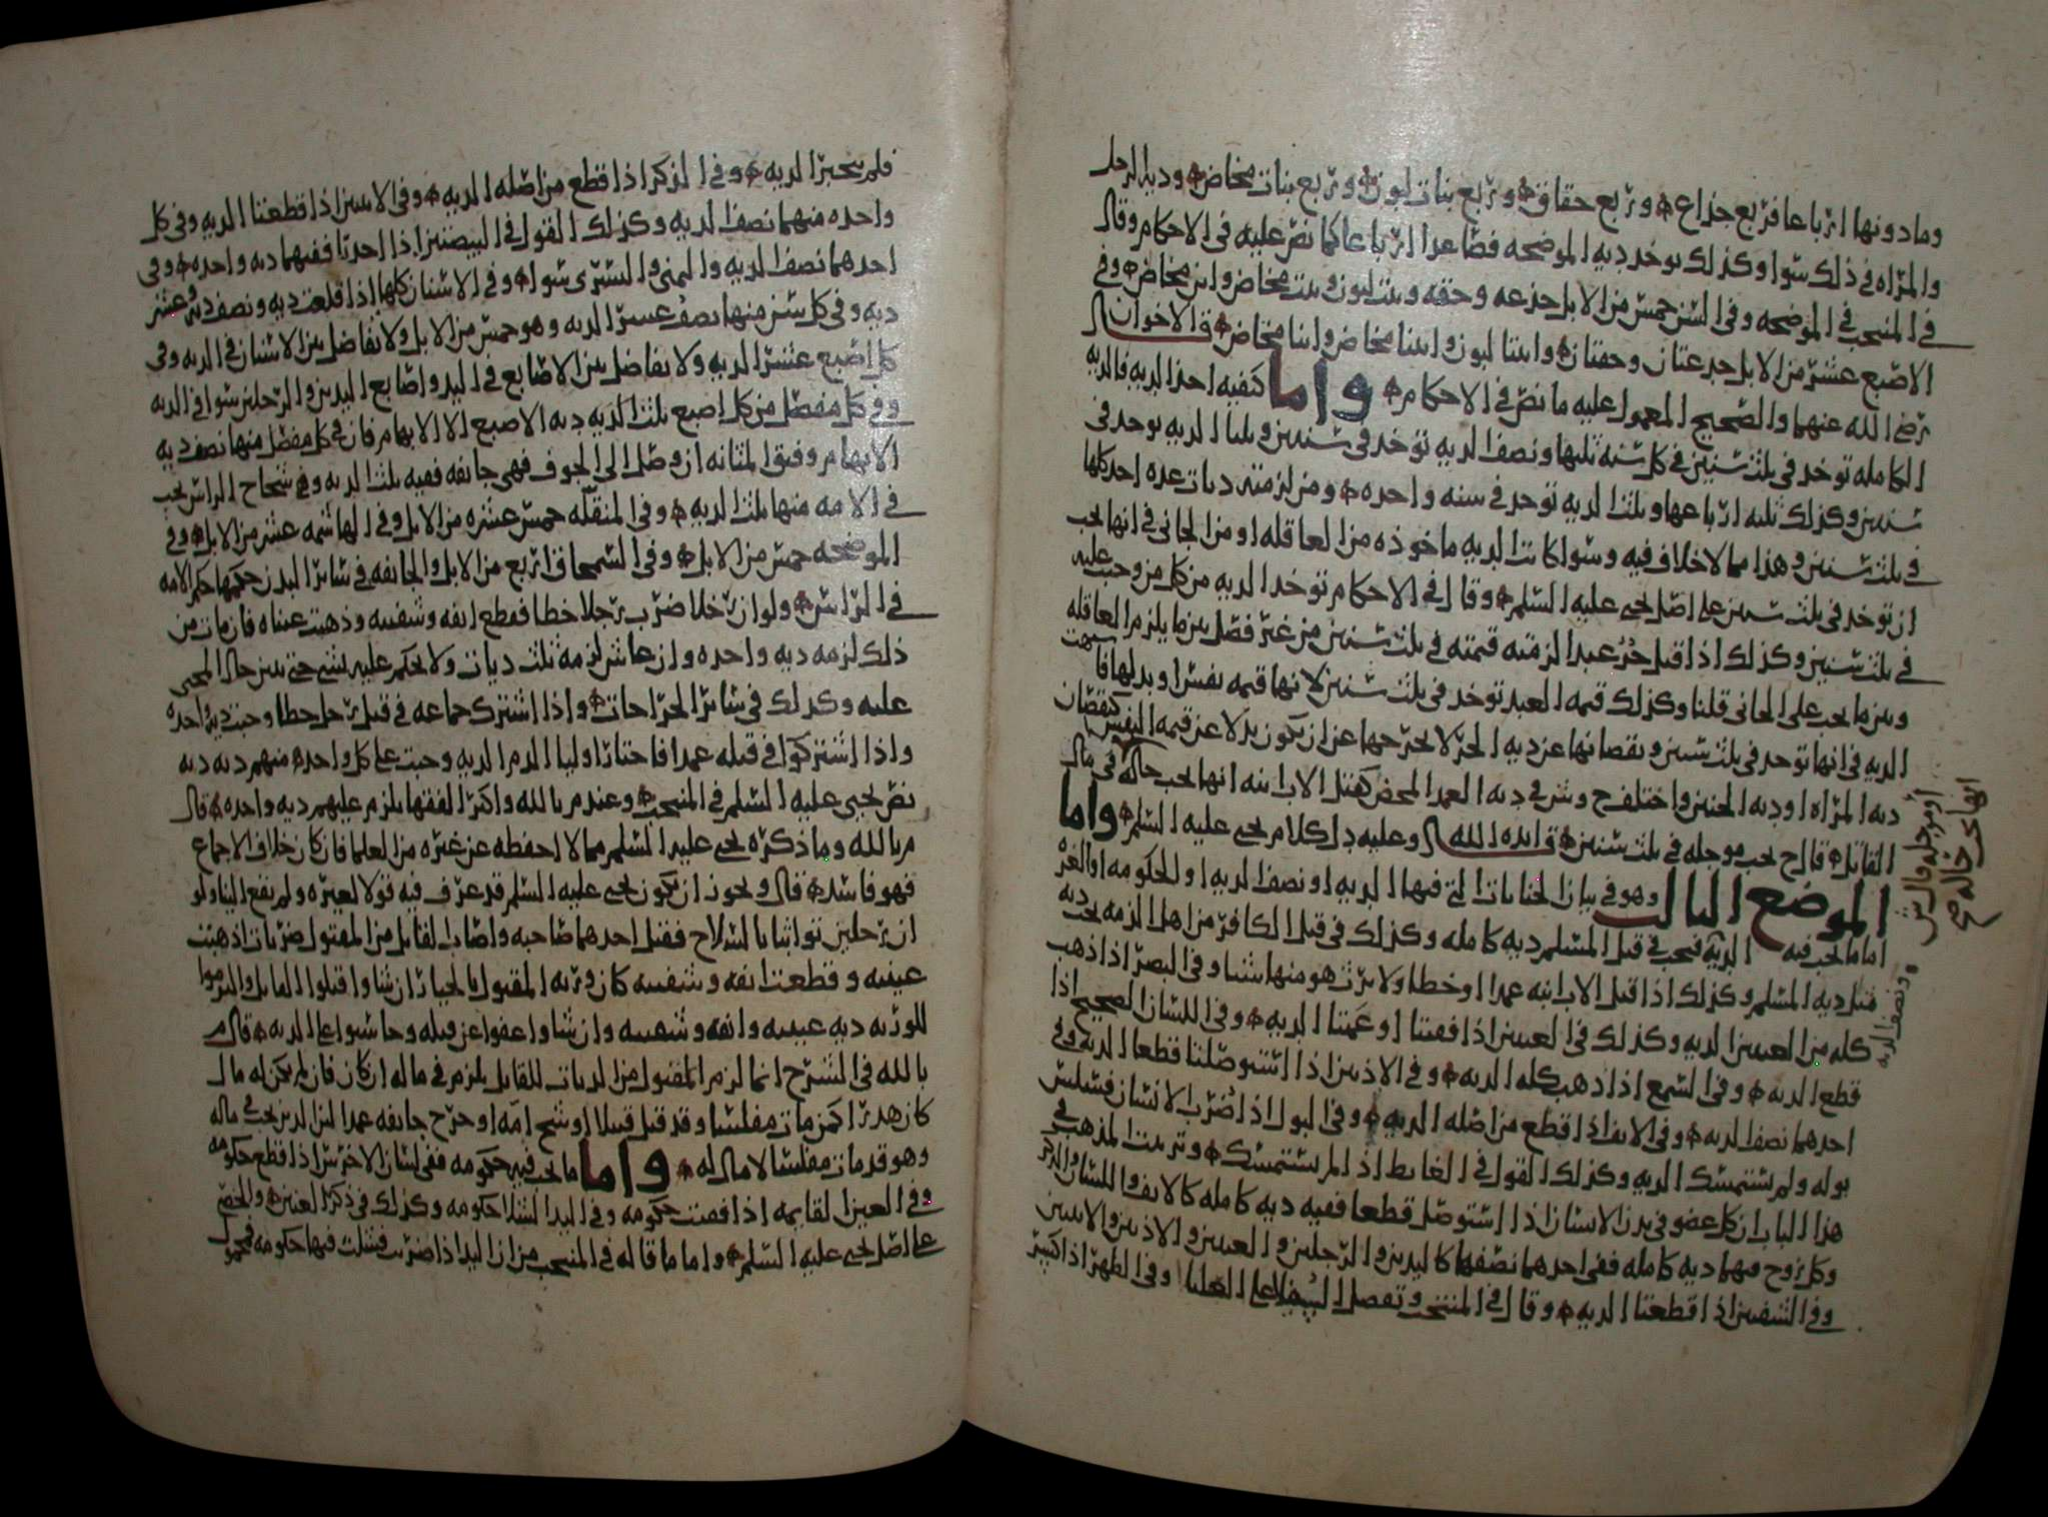 وما دونها ارباعا فربع جذاع وربع حقاق وربع بنات لبون وربع بنات مخاض ودية الرجل
والمراه في ذلك سوا وكذلك توخذ دية الموضحه فصاعدا ارباعا كما نص عليه في الاحكام وقال
في المنتخب في الموضحه وفي السن خمس من الابل جذعه وحقه وبنت لبون وبنت مخاض وابن مخاض وفي
الاصبع عشر من الابل جذعتان وحقتان وابنتا لبون وابنتا مخاض وابنا مخاض ق الاخوان
رضي الله عنهما والصحيح المعمول عليه ما نص في الاحكام واما كيفيه اخذ الديه فالديه
الكامله توخذ في ثلث سنين في كل سنه ثلثها ونصف الديه توخذ في سنتين وثلثا الديه توخذ في
سنتين وكذلك ثلثه ارباعها وثلث الديه توخذ في سنه واحده ومن لزمته ديات عده اخذ كلها
في ثلث سنين وهذا مما لا خلاف فيه وسوا كانت الديه ماخوذه من العاقله او من الجاني في انها يجب
ان توخذ في ثلث سنين على اصل يحيى عليه السلم وقال في الاحكام توخذ الديه من كل من وجبت عليه
في ثلث سنين وكذلك اذا قتل حر عبدا لزمته قيمته في ثلث سنين من غير فصل بين ما يلزم العاقله
وبين ما يجب على الجاني قلنا وكذلك قيمه العبد توخذ في ثلث سنين لانها قيمه نفس او بدلها
الديه في انها توخذ في ثلث سنين ونقصانها عن ديه الحر لا يخرجها عن ان يكون بدلا عن قيمه النفس كنقصان
ديه المراه او ديه الجنين واختلف ح وش في ديه العمد المحض كقتل الاب ابنه انها يجب حاله في مال
القاتل قال ح يجب موجله في ثلث سنين ق ايده الله وعليه دل كلام يحيى عليه السلم واما
الموضع الثالث وهو في بيان الجنايات التي فيها الديه او نصف الديه او الحكومه او الغره
اما ما يجب فيه الديه فيجب في قتل المسلم ديه كامله وكذلك في قتل الكافر من اهل الذمه يجب ديه
مثل ديه المسلم وكذلك اذا قتل الاب ابنه عمدا او خطا ولا يرث هو منها شيئا وفي البصر اذا ذهب
كله من العينين الديه وكذلك في العينين اذا فقيتا او عميتا الديه وفي اللسان الصحيح اذا
قطع الديه وفي السمع اذا ذهب كله الديه وفي الاذنين اذا استوصلتا قطعا الديه وفي
احدهما نصف الديه وفي الانف اذا قطع من اصله الديه وفي البول اذا ضرب الانسان فسلس
بوله ولم يستمسك الديه وكذلك القول في الغايط اذا لم يستمسك وترتيب المذهب في
هذا الباب ان كل عضو في بدن الانسان اذا استوصل قطعا ففيه ديه كامله كالانف واللسان والذكر
وكل زوج منهما ديه كامله ففي احدهما نصفها كاليدين والرجلين والعينين والاذنين والانثيين
وفي الشفتين اذا قطعتا الديه وقال في المنتخب وتفضل السفلى على العليا وفي الظهر اذا كسر
او موجله وقال ش
انها يجب حاله صح
ونصف الديه
فلم ينجبر الديه وفي الذكر اذا قطع من اصله الديه وفي الانثيين اذا قطعتا الديه وفي كل
واحده منهما نصف الديه وكذلك القول في البيضتين اذا اخذتا ففيهما ديه واحده وفي
احدهما نصف الديه واليمنى واليسرى سوا وفي الاسنان كلها اذا قلعت ديه ونصف ديه وعشر
ديه وفي كل سن منها نصف عشر الديه وهو خمس من الابل ولا تفاضل بين الاسنان في الديه وفي
كل اصبع عشر الديه ولا تفاضل بين الاصابع في اليد واصابع اليدين والرجلين سوا في الديه
وفي كل مفصل من كل اصبع ثلث الديه ديه الاصبع الا الابهام فان في كل مفصل منها نصف ديه
الابهام وفتق المثانه ان وصل الى الجوف فهي جايفه ففيه ثلث الديه وفي شجاج الراس يجب
في الامه منها ثلث الديه وفي المنقله خمس عشره من الابل وفي الهاشمه عشر من الابل وفي
الموضحه خمس من الابل وفي السمحاق اربع من الابل والجايفه في ساير البدن حكمها حكم الامه
في الراس ولو ان رجلا ضرب رجلا خطا فقطع انفه وشفتيه وذهبت عيناه فان مات من
ذلك لزمه ديه واحده وان عاش لزمه ثلث ديات ولا يحكم عليه بشي حتى يتبين حال المجني
عليه وكذلك في ساير الجراحات واذا اشترك جماعه في قتل رجل خطا وجبت ديه واحده
واذا اشتركوا في قتله عمدا فاختار اوليا الدم الديه وجبت على كل واحد منهم ديه ديه
نص يحيى عليه السلم في المنتخب وعند م بالله واكثر الفقها يلزم عليهم ديه واحده قال
م بالله وما ذكره يحيى عليه السلم مما لا احفظه عن غيره من العلما فان كان خلاف الاجماع
فهو فاسد قال ويجوز ان يكون يحيى عليه السلم قد عرف فيه قولا لغيره ولم يقع الينا ولو
ان رجلين تواثبا بالسلاح فقتل احدهما صاحبه واصاب القاتل من المقتول ضربات اذهبت
عينيه وقطعت انفه وشفتيه كان ورثه المقتول بالخيار ان شاوا قتلوا القاتل والتزموا
للورثه ديه عينيه وانفه وشفتيه وان شاوا عفوا عن قتله وحاسبوا على الديه قال م
بالله في الشرح انما لزم المقتول من الديات للقاتل يلزم في ماله ان كان فان لم يكن له مال
كان هدرا كمن مات مفلسا وقد قتل قتيلا او شج امه او جرح جايفه عمدا لان الدين يجب في ماله
وهو قد مات مفلسا لا مال له واما ما يجب فيه حكومه ففي لسان الاخرس اذا قطع حكومه
وفي العين القايمه اذا فقيت حكومه وفي اليد الشلا حكومه وكذلك في ذكر العنين والخصي
على اصل يحيى عليه السلم واما ما قاله في المنتخب من ان اليد اذا ضربت فشلت فيها حكومه فمحمول